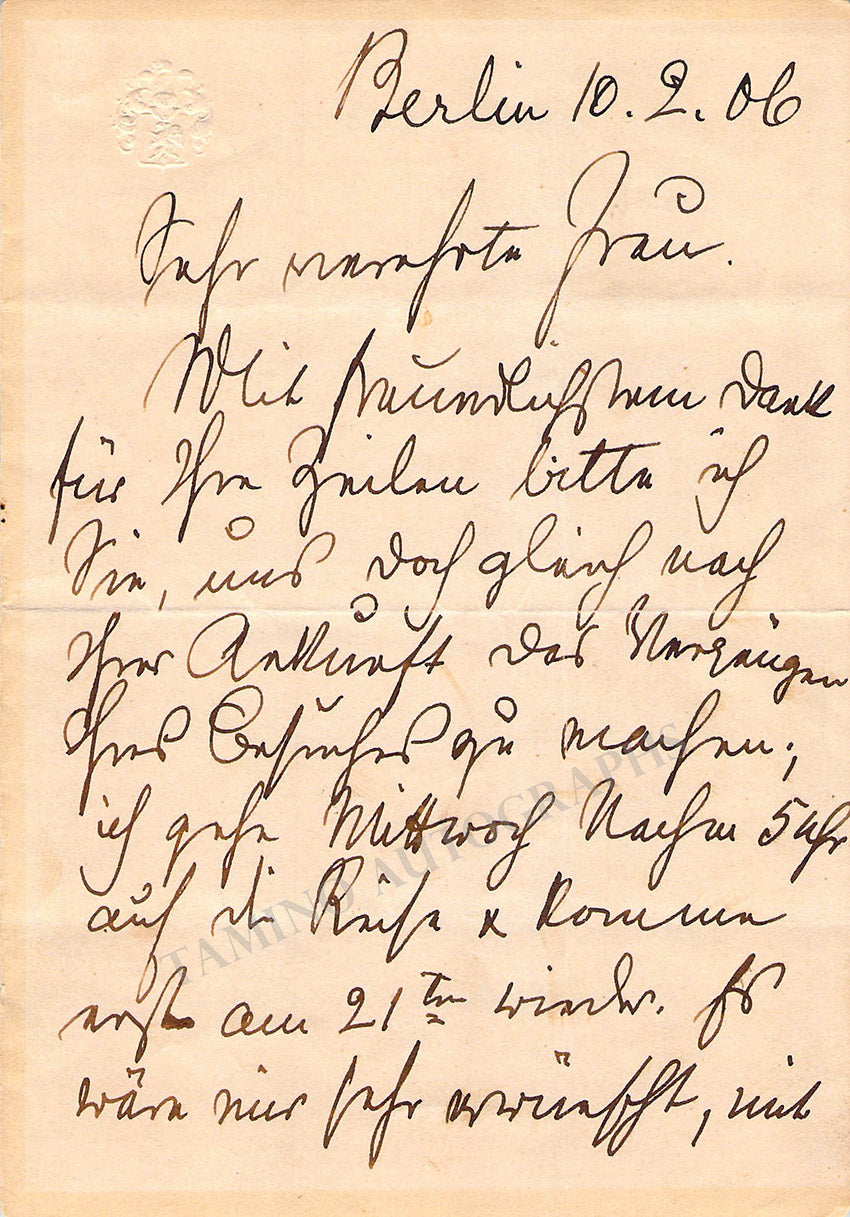 Berlin 10.2.06
Sehr verehrte Frau.
Mit freundlichstem Dank
für Ihre Zeilen bitte ich
Sie, uns doch gleich nach
Ihrer Ankunft das Vergnügen
Ihres Besuches zu machen;
ich gehe Mittwoch Nachm 5 Uhr
auf die Reise & komme
erst am 21ten wieder. Es
wäre mir sehr erwünscht, mit
TAMINO AUTOGRAPHS